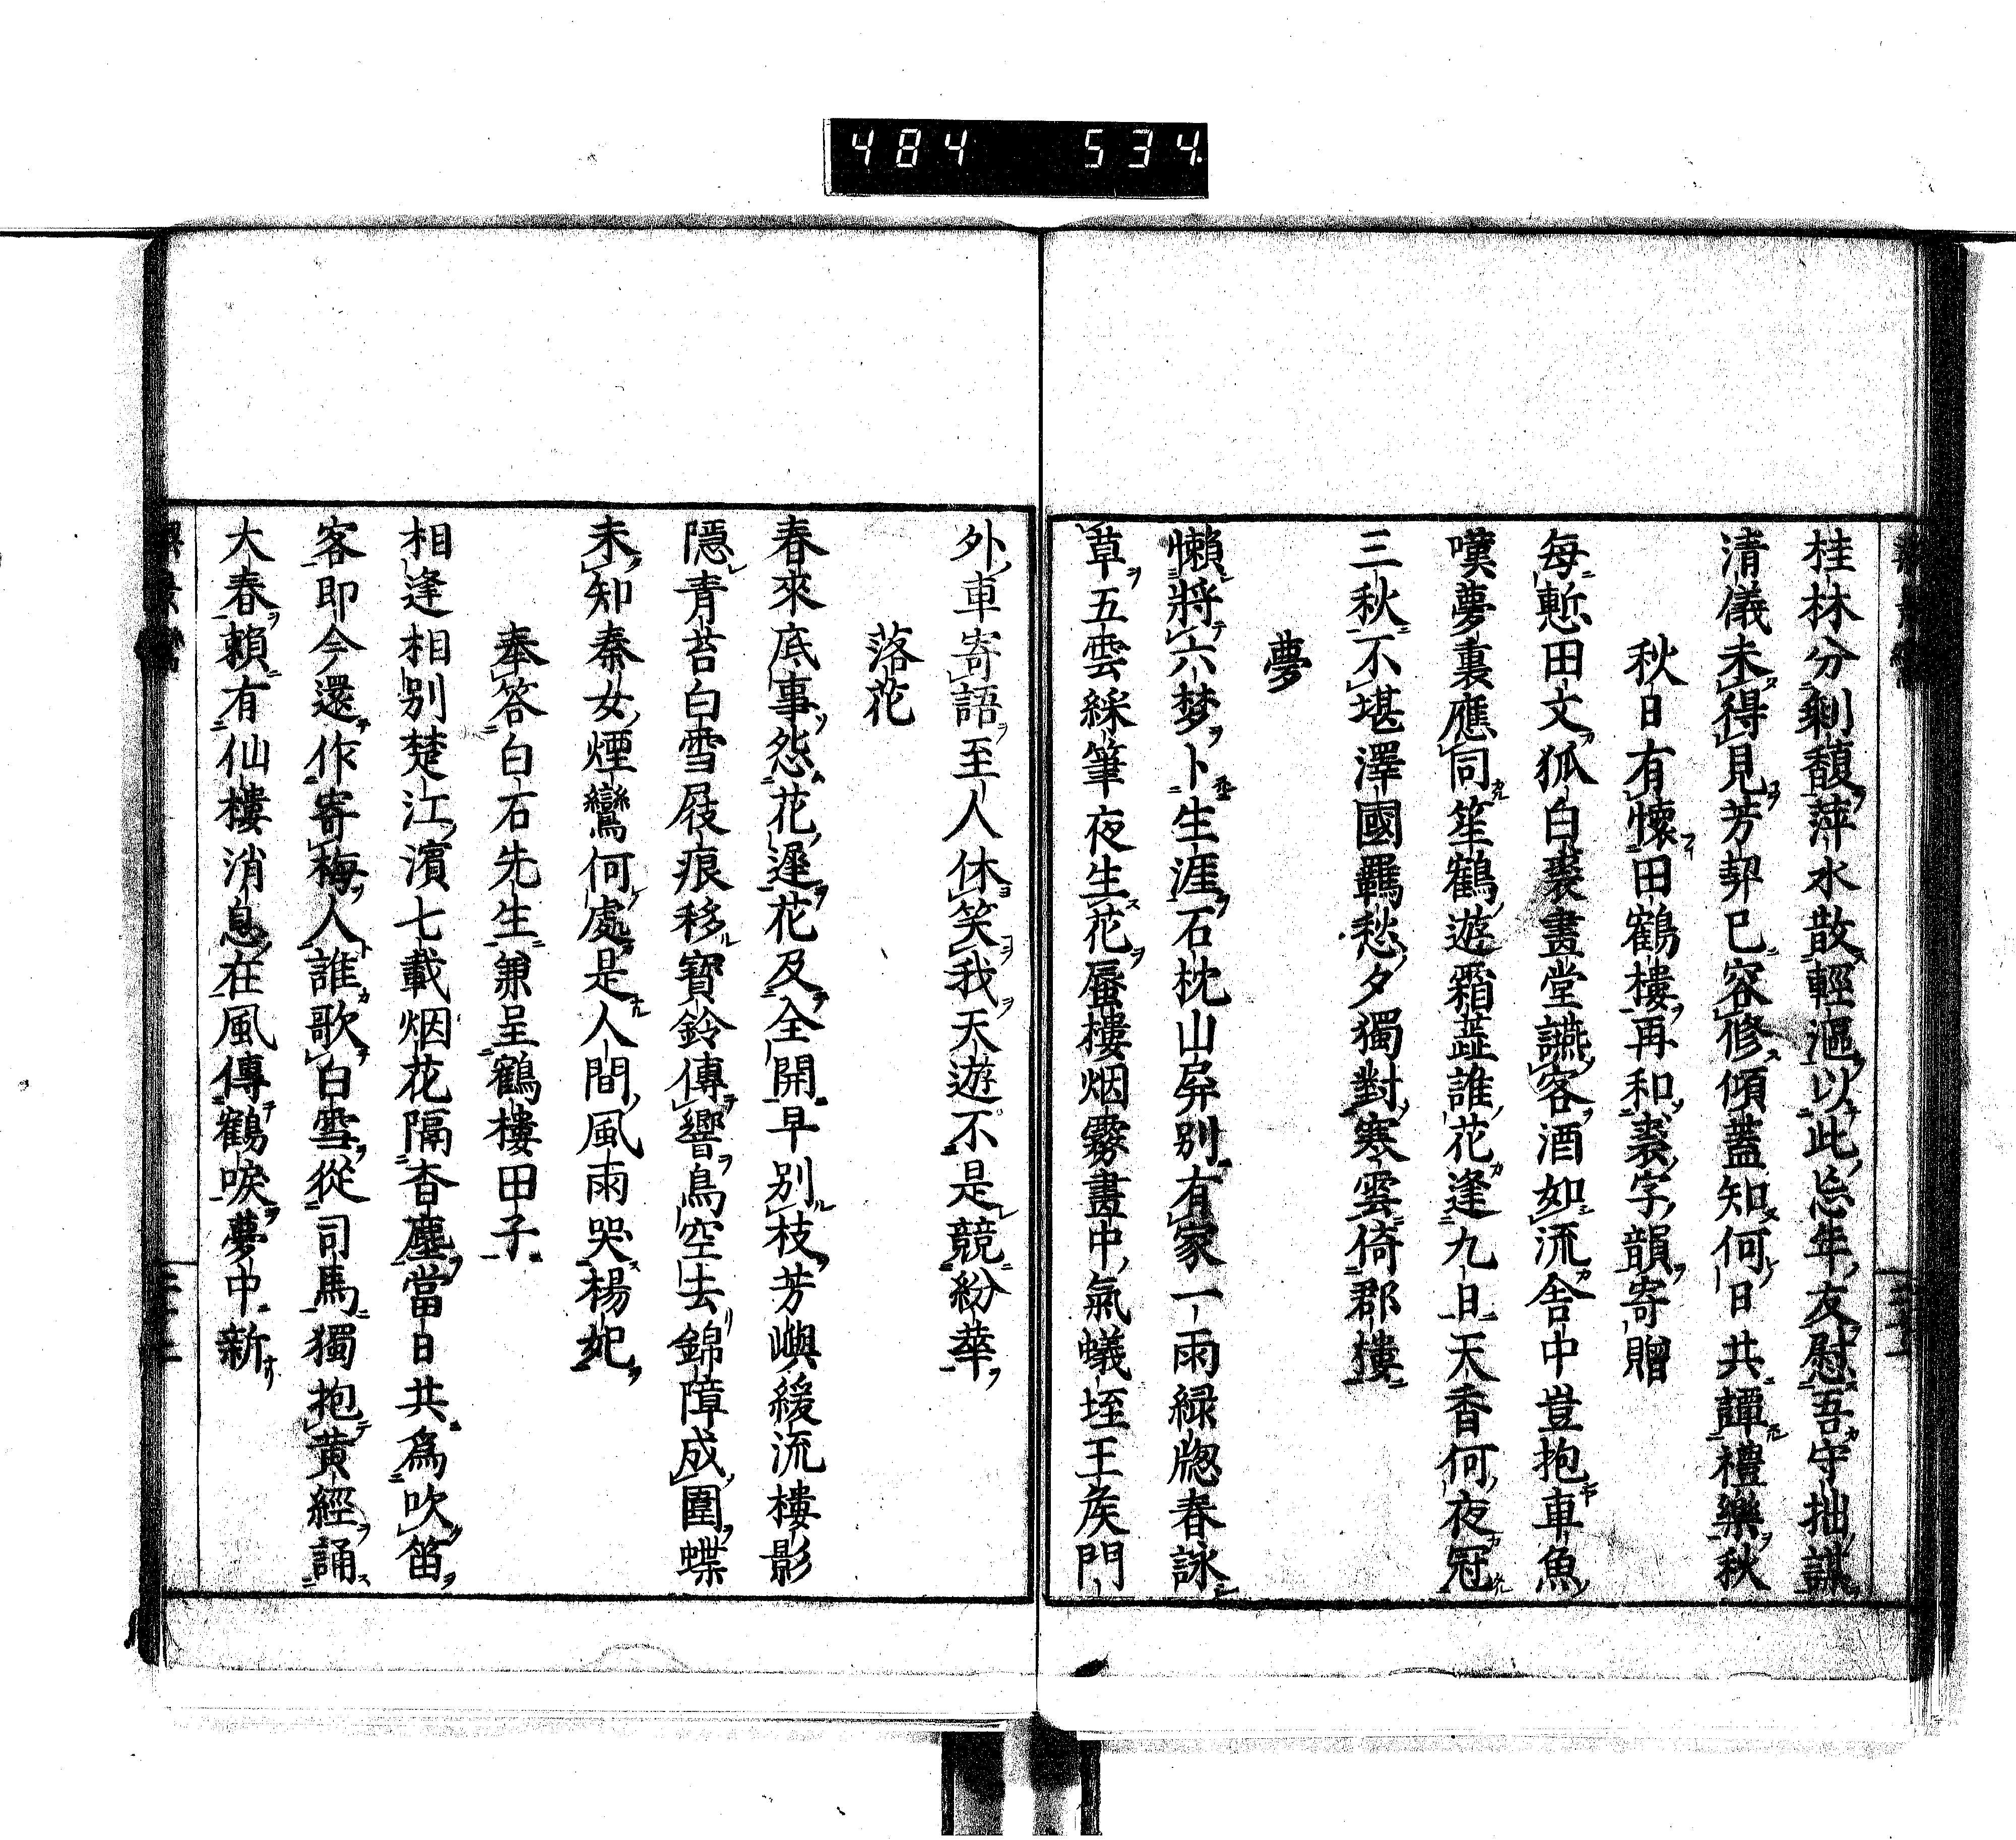 484 534
桂林分剩馥萍水散輕漚以此忘年友慰吾守拙謀
清儀未得見芳契已容修傾蓋知何日共譚禮樂秋
秋日有懷田鶴樓再和裘字韻寄贈
每慙田文狐白裘畫堂讌客酒如流舍中豈抱車魚
嘆夢裏應同笙鶴遊霜蘂誰花逢九日天香何夜冠
三秋不堪澤國羈愁夕獨對寒雲倚郡樓
夢
懶將六梦卜生涯石枕山屏别有家一雨緑牕春詠
草五雲綵筆夜生花蜃樓烟霧畫中氣蟻垤王矦門
外車寄語至人休笑我天遊不是競紛華
落花
春來底事怨花遲花及全開早别枝芳嶼緩流樓影
隱青苔白雪屐痕移寶鈴傳響鳥空去錦障成圍蝶
未知秦女煙鸞何處是人間風雨哭楊妃
奉答白石先生兼呈鶴樓田子
相逢相别楚江濱七載烟花隔杳塵當日共爲吹笛
客即今還作寄梅人誰歌白雪從司馬獨抱黄經誦
大春賴有仙樓消息在風傳鶴唳夢中新